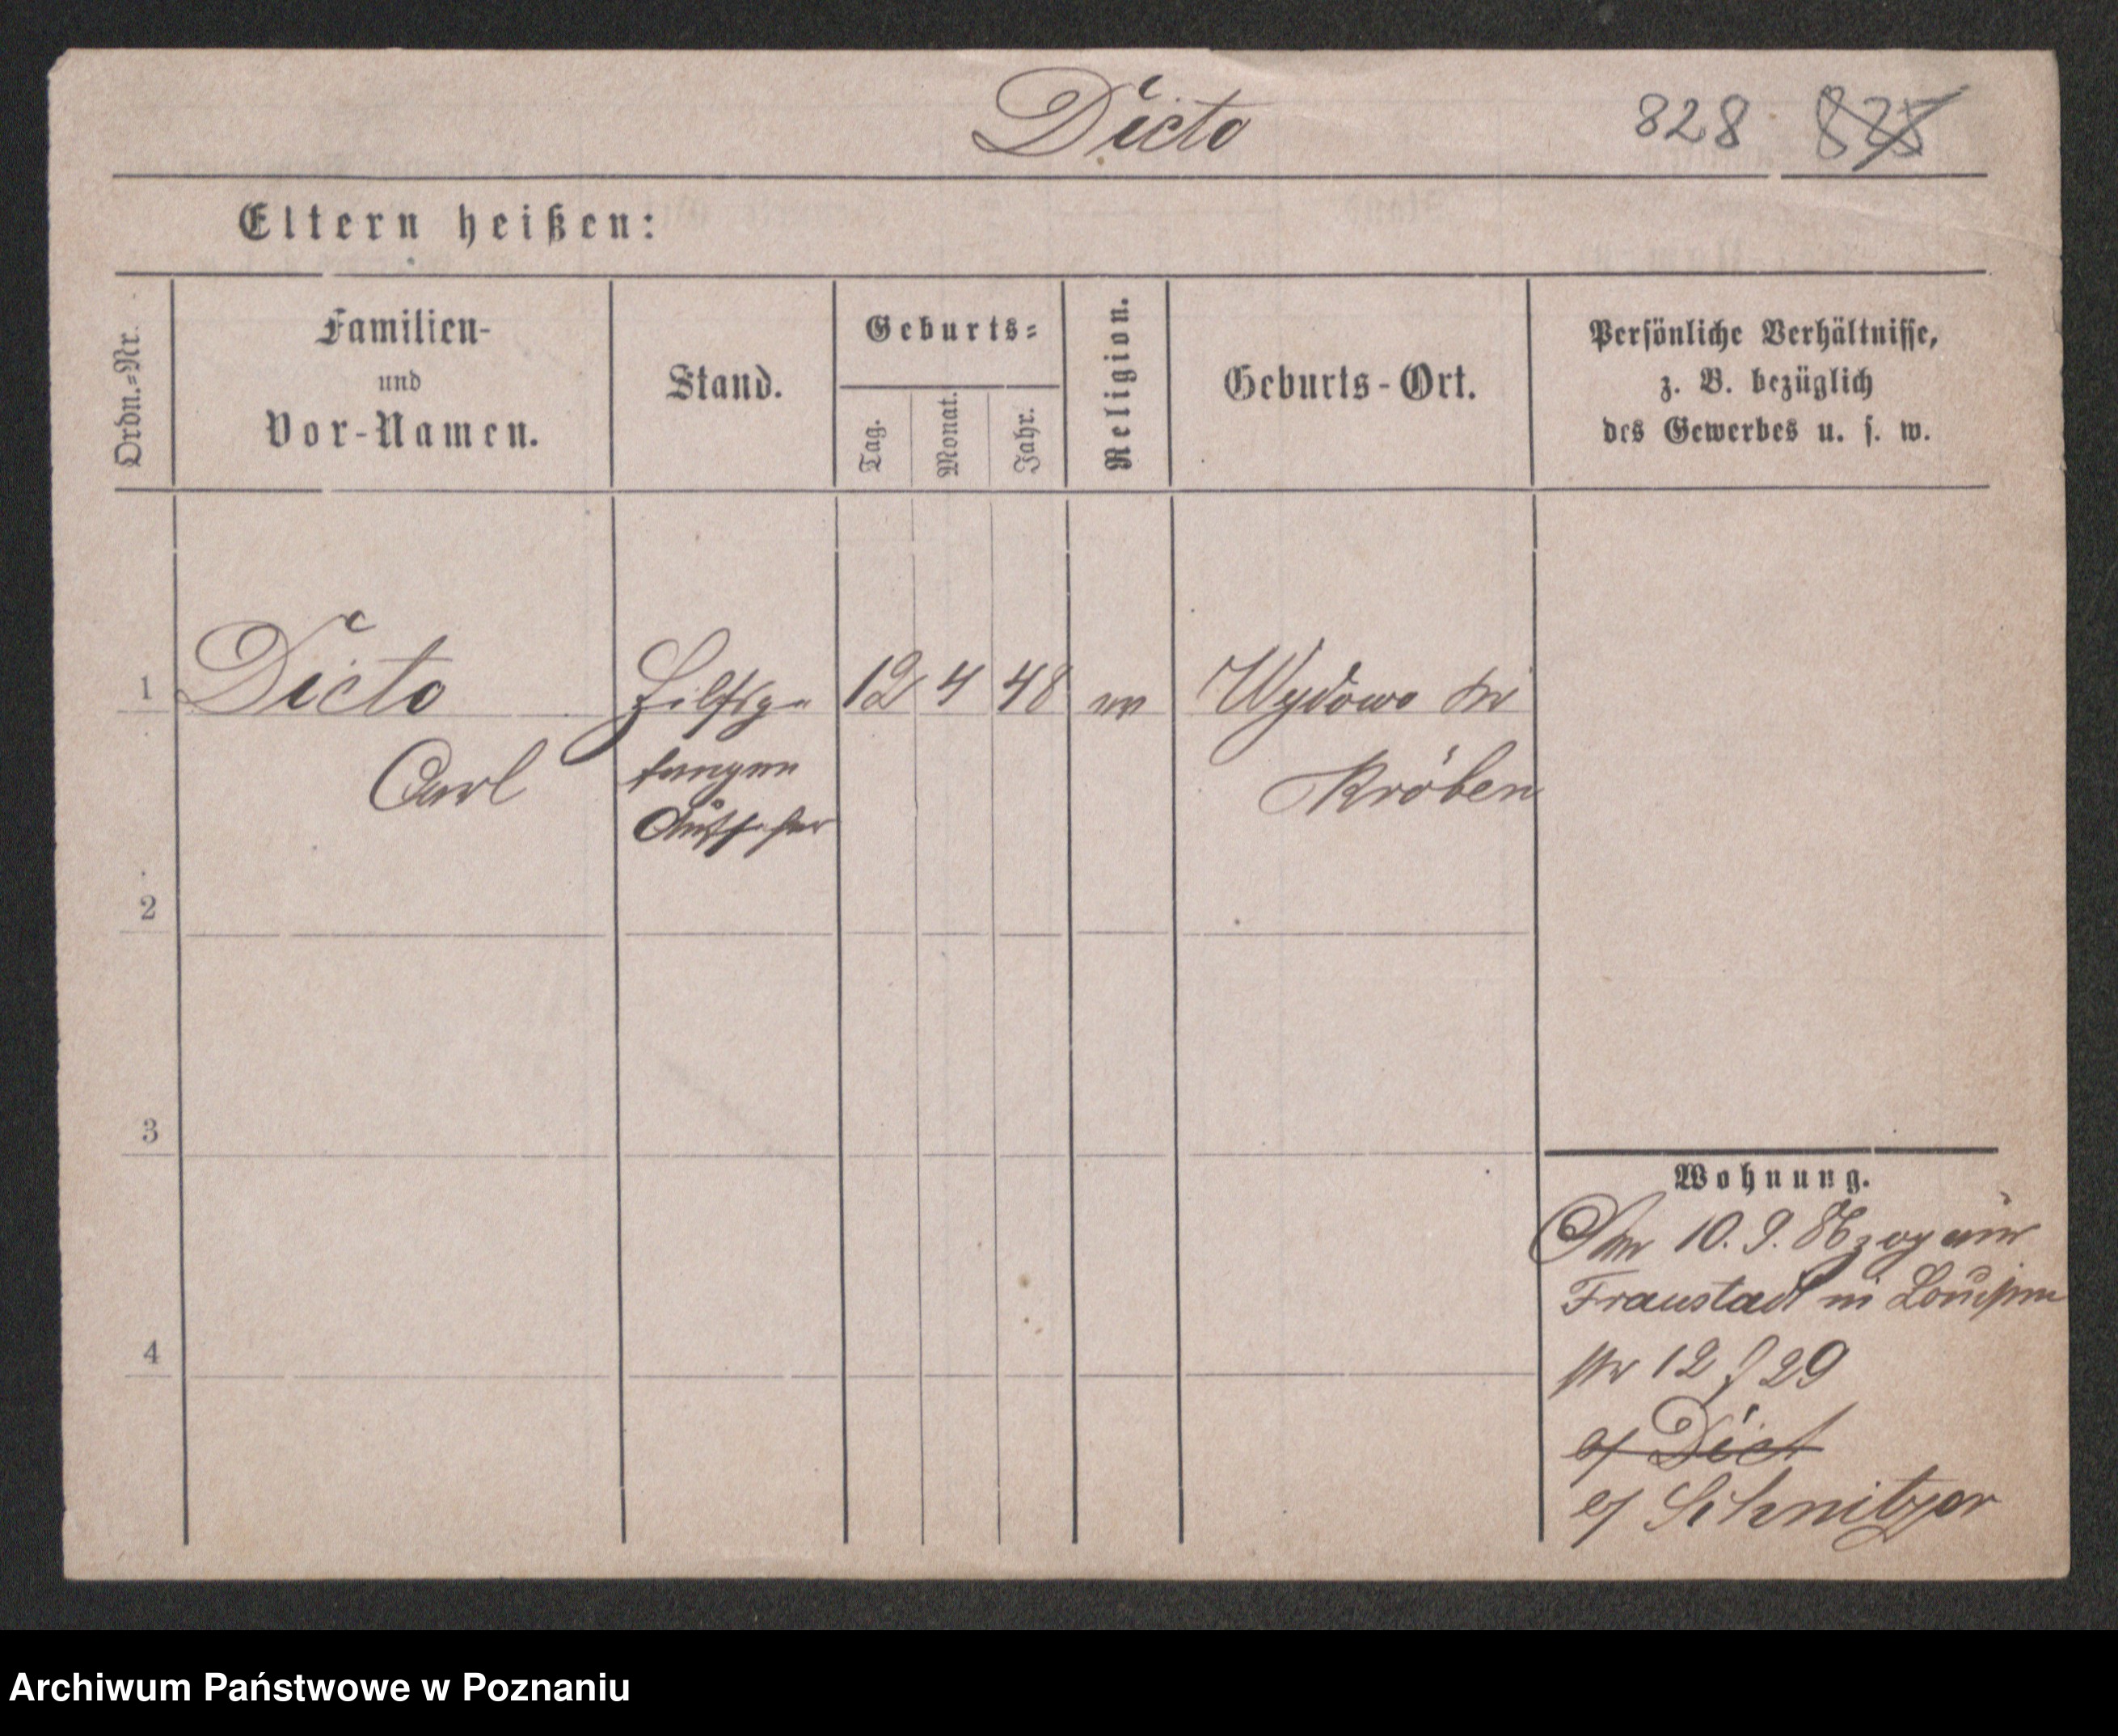 Dicto 828 825
Eltern heißen:
Ordn.-Nr.
Familien-
und
Vor-Namen.
Stand.
Geburts-
Tag.
Monat.
Jahr.
Religion.
Geburts-Ort.
Persönliche Verhältnisse,
z. B. bezüglich
des Gewerbes u. s. w.
1 Dicto Hilfsge 12 4 48 Wydowo
Carl fangen Kröben
Aufseher
2
3
4
Wohnung.
Am 10. 9. 86 zog
Fraustadt in Louisen
str 12 29
Dict
Schnitzer
Archiwum Państwowe w Poznaniu